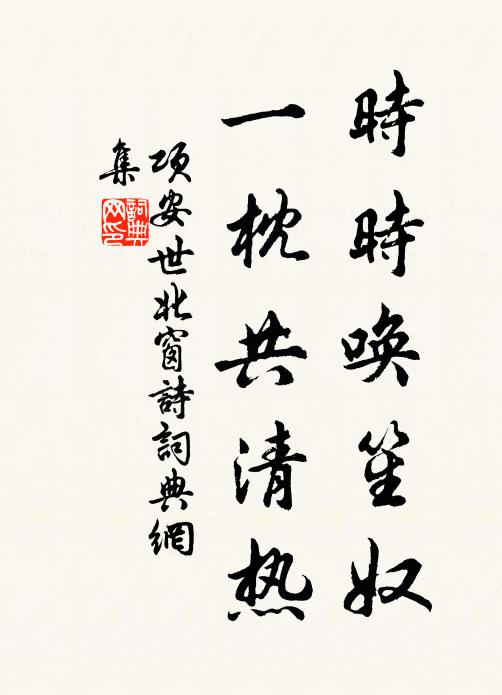 時時喚笙奴
一枕共清热
項安世北窗詩詞典網
集
詞典网印